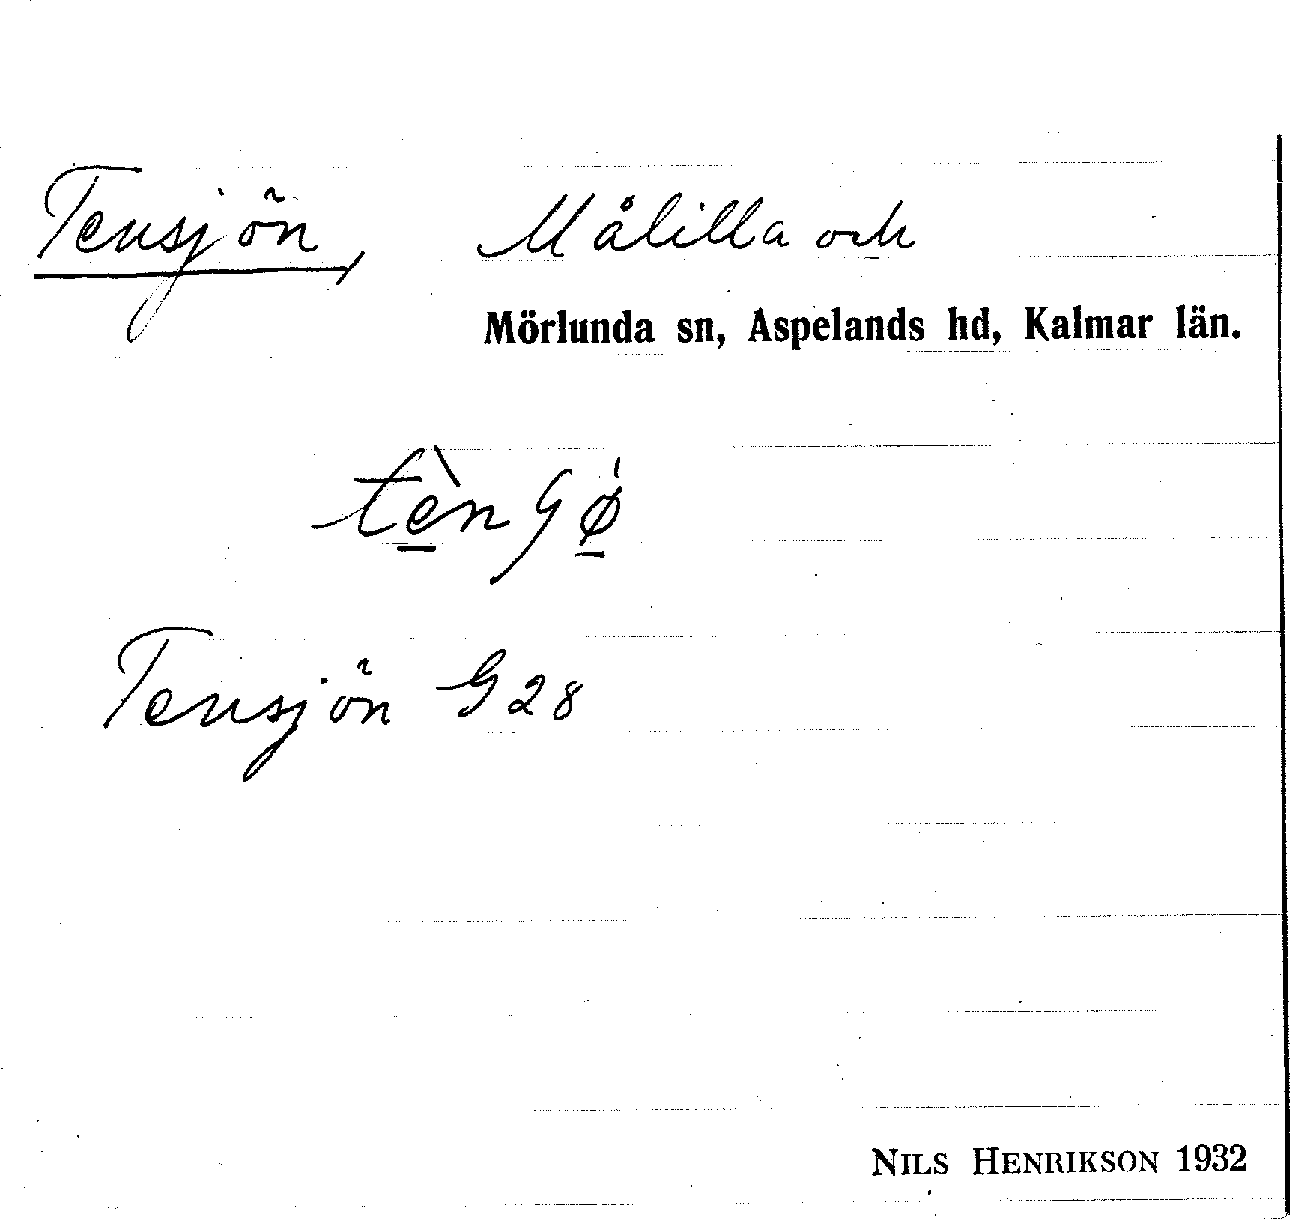 Tensjön, Målilla och
Mörlunda sn, Aspelands hd, Kalmar län.
Tensjön G 28
NILS HENRIKSON 1932